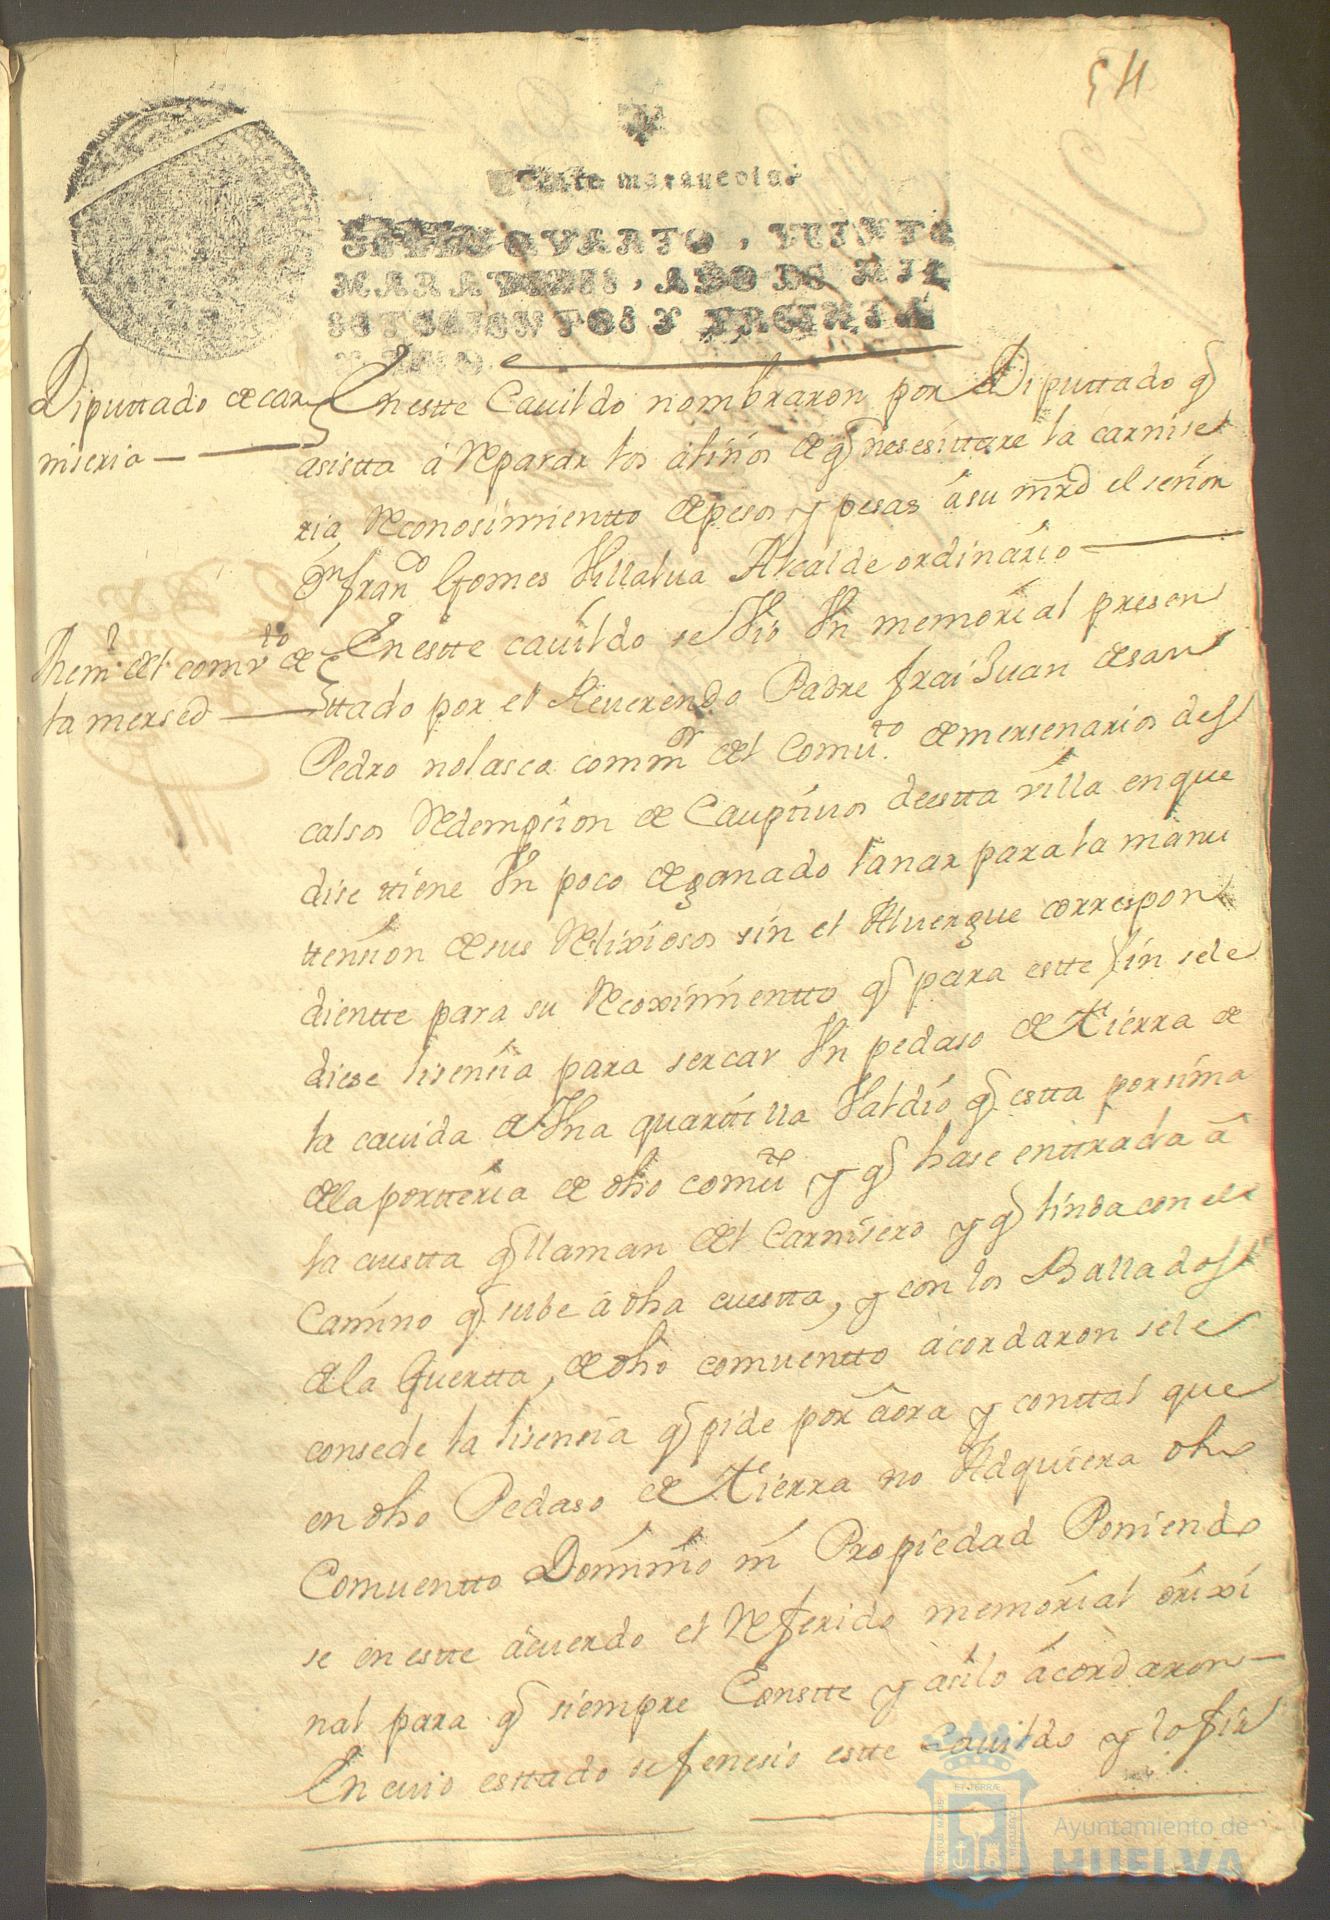 54
Veinte marauedis
SELLO QVARTO, VEINTE
MARAVEDIS, AÑO DE MIL
SETECIENTOS Y TREINTA
Diputtado de car
niseria
En estte Cauildo nombraron por Diputtado q̃
asistta á Reparar los aliños de q̃ nesesittare la carnise
ria Reconosimientto de pesos y pesas á su mrd el señor
Dn Franco Gomes Villalua Alcalde ordinario
Mem.l del comu.to de
la mersed
En estte cauildo se Vio Vn memorial presen
ttado por el Reuerendo Padre frai Juan de san
Pedro nolasco comm.or del Comu.to de mersenarios des
calsos Redempsion de Cauptiuos de estta villa en que
dise ttiene Vn poco de ganado lanar para la manu
tension de sus Relixiosos sin el Aluergue correspon
dientte para su Recoximientto q̃ para estte fin se le
diese lisensia para sercar Vn pedaso de tierra de
la cauida de Vna quarttilla Valdio q̃ estta por sima
de la portteria de dho comu.to y q̃ hase enttrada á
la cuestta q̃ llaman del Carnisero y q̃ linda con el
Camino q̃ sube á dha cuestta, y con los Ballados
de la Guertta, de dho comuentto acordaron se le
consede la lisensia q̃ pide por áora y conttal que
en dho Pedaso de tierra no Adquiera dho
Comuentto Dominio ni Propiedad Poniendo
se en estte ácuerdo el Referido memorial órixi
nal para q̃ siempre Constte y asilo ácordaron
En cuio esttado se fenesio estte Cauildo y lo fir
ET TERRÆ
Ayuntamiento de
HUELVA